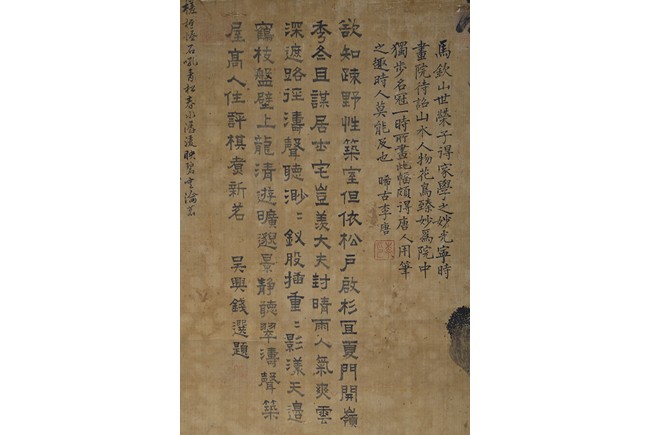 馬欽山世榮子得家學之妙光寧時
畫院待詔山水人物花鳥臻妙為院中
獨步名冠一時所畫此幅頗得唐人用筆
之趣時人莫能及也 晞古李唐
欲知疎野性築室但依松戶啟杉宜夏門開嶺
秀冬且謀居士宅豈羨大夫封晴雨人氣爽雲
深遮路徑濤聲聽渺〻釵股插重〻影漾天邊
鶴枝盤壁上龍清遊曠邈景靜聽翠濤聲築
屋高人住評棋煮新茗 吳興錢選題
石 青松春水 映碧